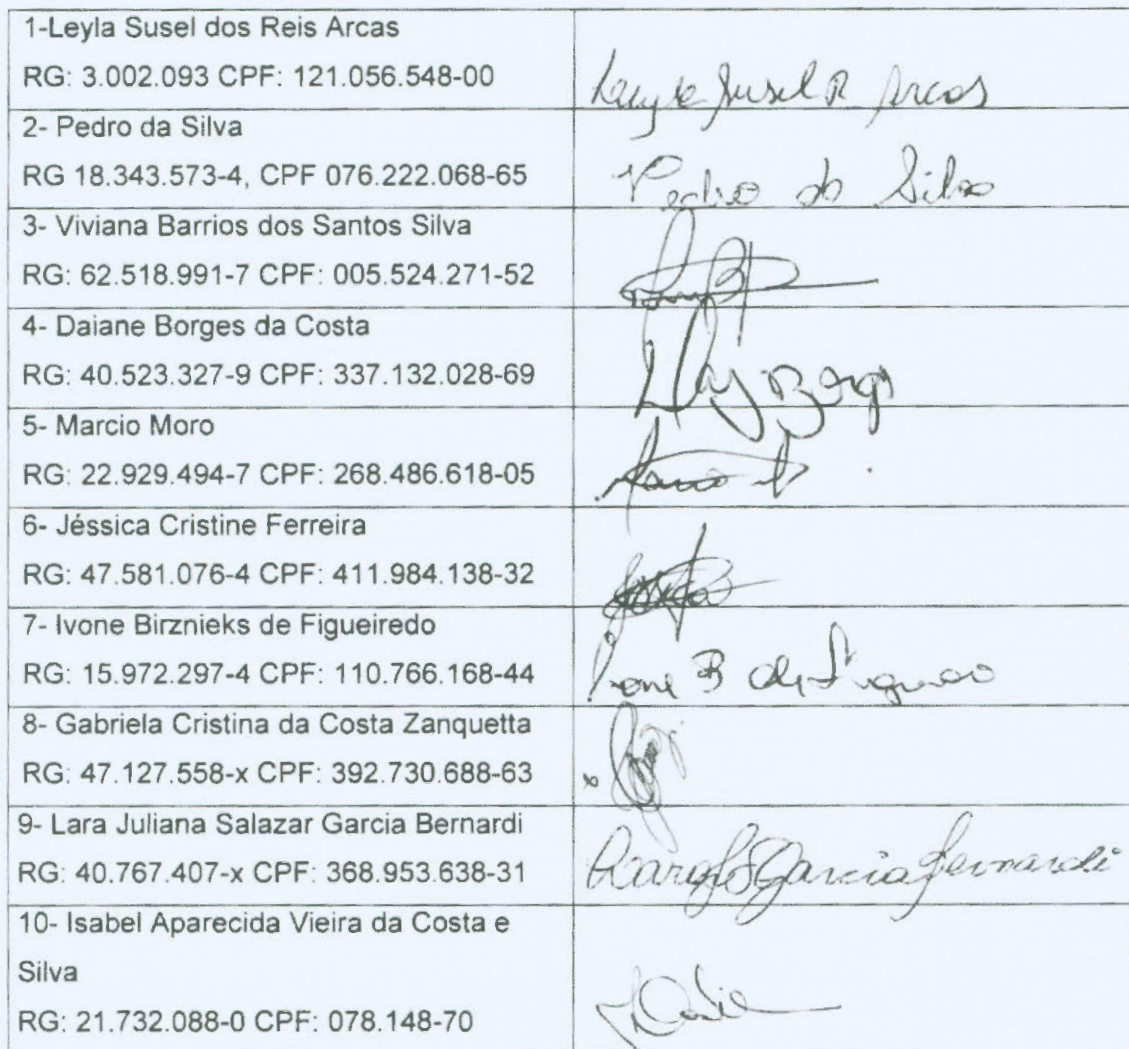 1-Leyla Susel dos Reis Arcas
RG: 3.002.093 CPF: 121.056.548-00
Leyla Susel R Arcas
2- Pedro da Silva
RG 18.343.573-4, CPF 076.222.068-65
Pedro da Silva
3- Viviana Barrios dos Santos Silva
RG: 62.518.991-7 CPF: 005.524.271-52
4- Daiane Borges da Costa
RG: 40.523.327-9 CPF: 337.132.028-69
5- Marcio Moro
RG: 22.929.494-7 CPF: 268.486.618-05
6- Jéssica Cristine Ferreira
RG: 47.581.076-4 CPF: 411.984.138-32
7- Ivone Birznieks de Figueiredo
RG: 15.972.297-4 CPF: 110.766.168-44
8- Gabriela Cristina da Costa Zanquetta
RG: 47.127.558-x CPF: 392.730.688-63
9- Lara Juliana Salazar Garcia Bernardi
RG: 40.767.407-x CPF: 368.953.638-31
Garcia Bernardi
10- Isabel Aparecida Vieira da Costa e
Silva
RG: 21.732.088-0 CPF: 078.148-70